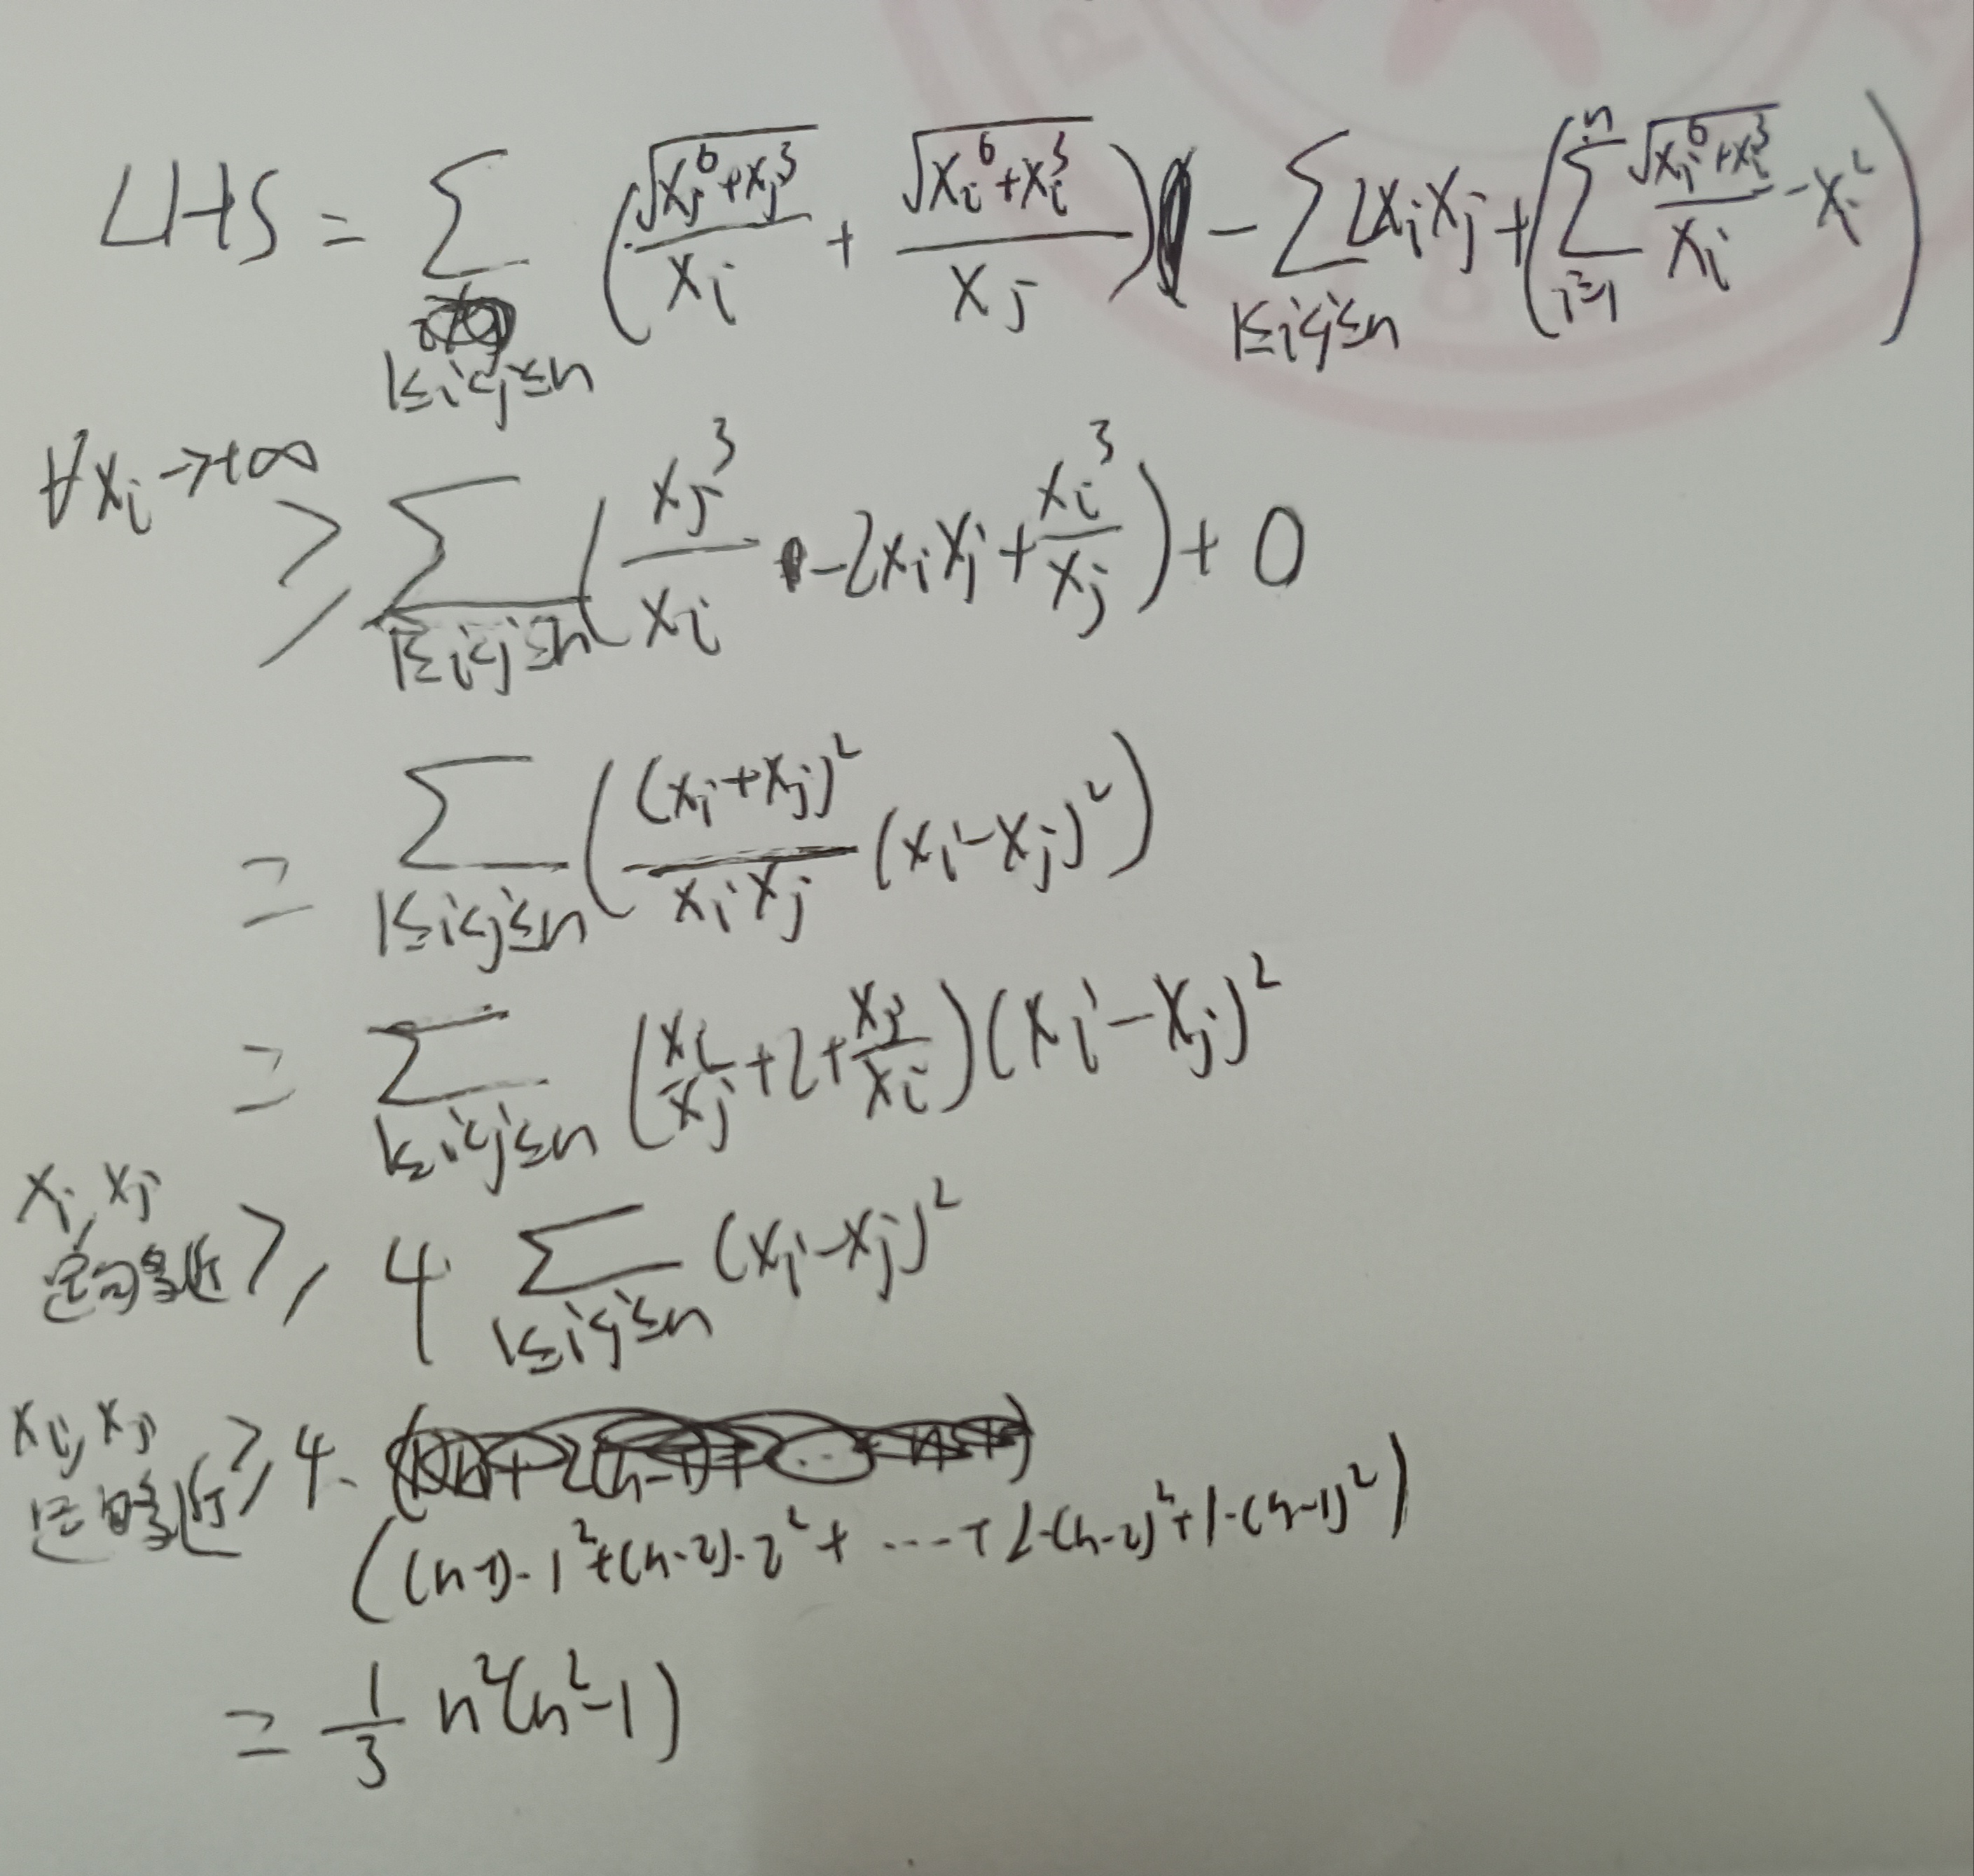 LHS = ∑_{1≤i<j≤n} ( √(x_j^6+x_j^3) / x_i + √(x_i^6+x_i^3) / x_j ) - ∑_{1≤i<j≤n} 2x_i x_j + ( ∑_{i=1}^{n} √(x_i^6+x_i^3) / x_i - x_i^2 )
∀x_i→+∞ ≥ ∑_{1≤i<j≤n} ( x_j^3 / x_i - 2x_i x_j + x_i^3 / x_j ) + 0
= ∑_{1≤i<j≤n} ( (x_i+x_j)^2 / x_i x_j (x_i-x_j)^2 )
= ∑_{1≤i<j≤n} ( x_i / x_j + 2 + x_j / x_i ) (x_i-x_j)^2
x_i, x_j 足够近 ≥ 4 ∑_{1≤i<j≤n} (x_i-x_j)^2
x_i, x_j 足够近 ≥ 4·
((n-1)·1^2+(n-2)·2^2+……+2·(n-2)^2+1·(n-1)^2)
= 1/3 n^2(n^2-1)